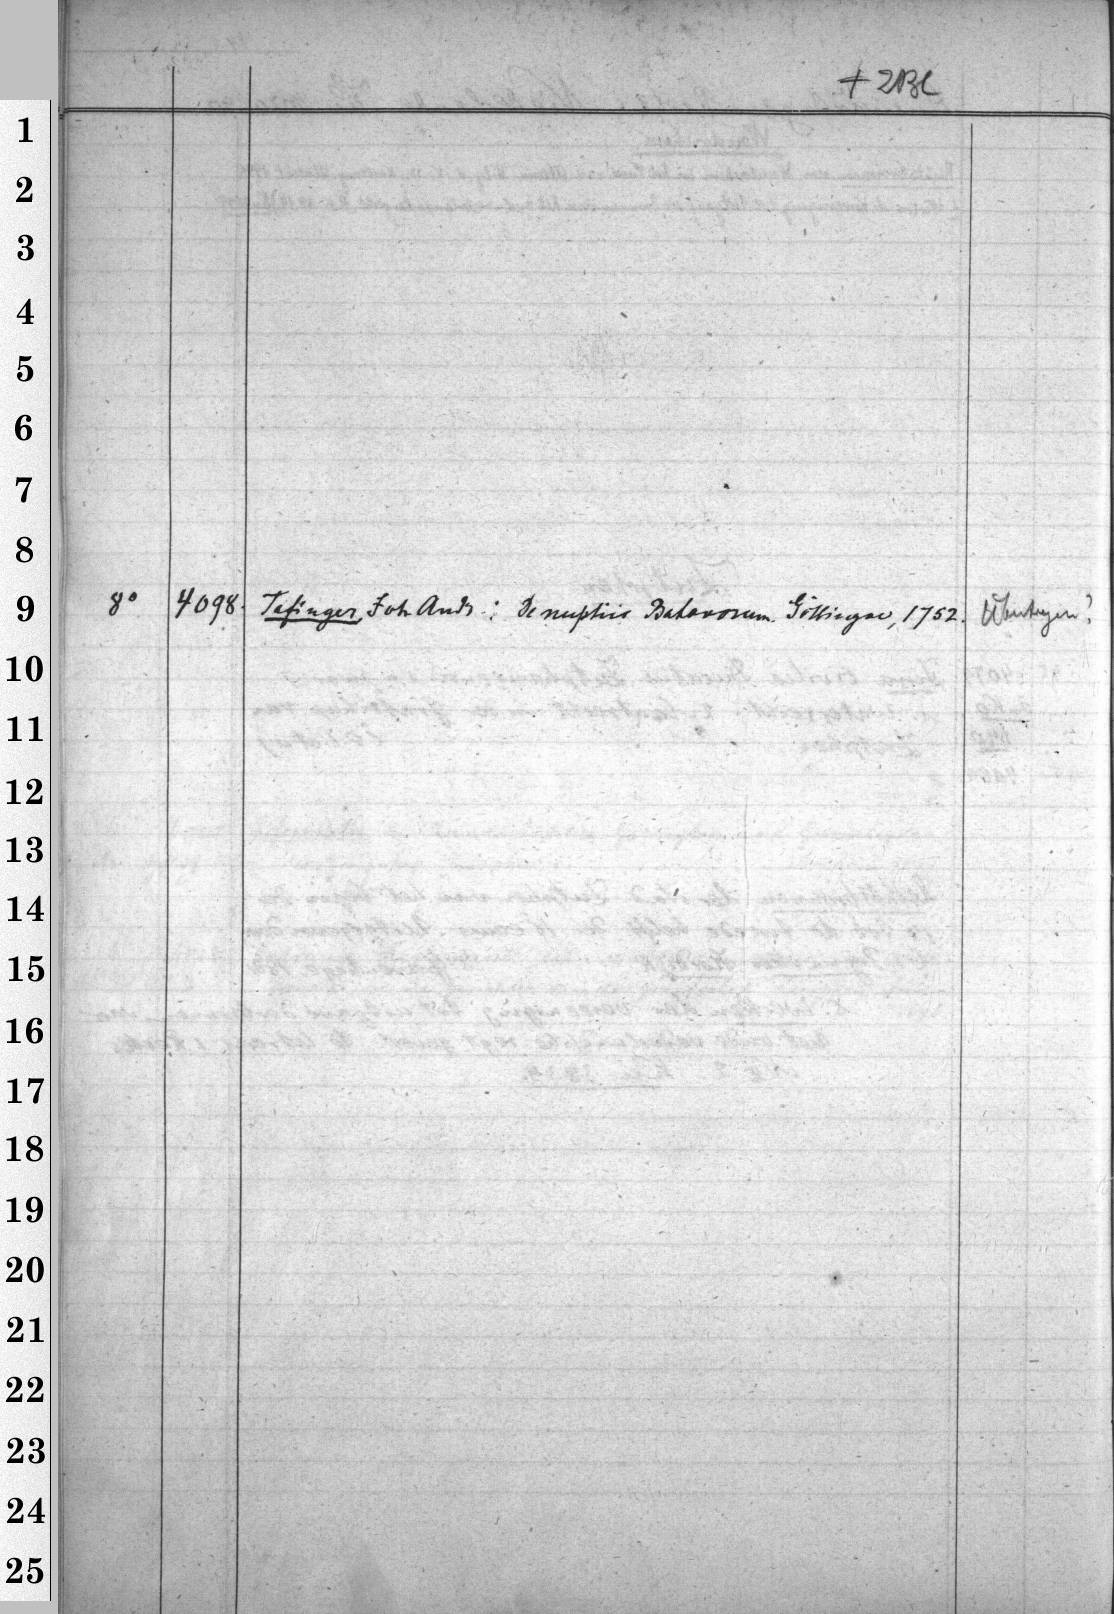 + 2Bl
1
2
3
4
5
6
7
8
9 8° 4098. Tafinger, Joh. Andr.: De nuptiis Batavorum. Göttingae, 1752.
10
11
12
13
14
15
16
17
18
19
20
21
22
23
24
25